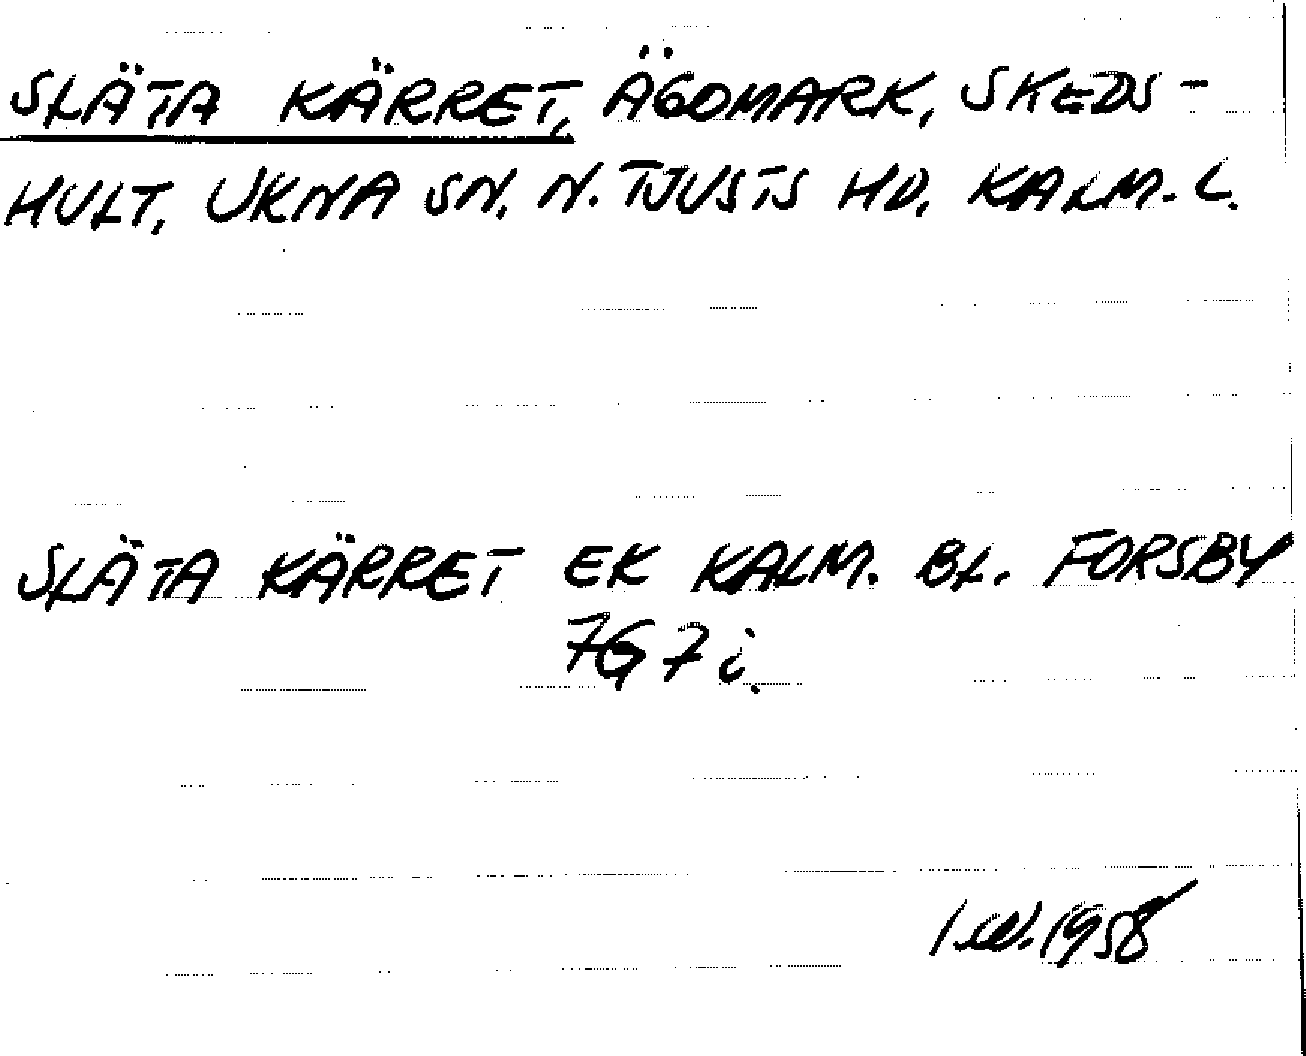 SLÄTA KÄRRET, ÄGOMARK, SKEDS-
HULT, UKNA SN. N. TJUSTS HD. KALM. L.
SLÄTA KÄRRET EK KALM. BL. FORSBY
7G 7i.
1958